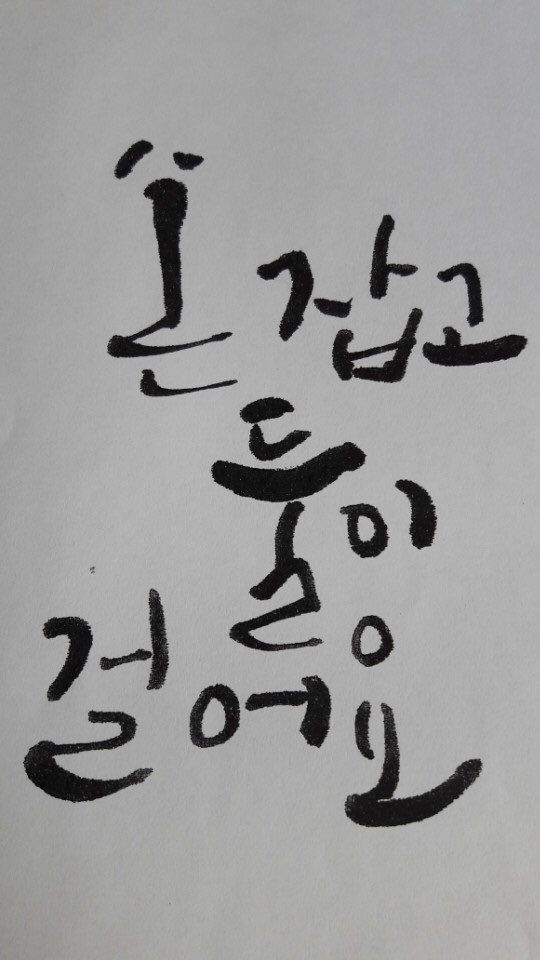 손 잡고
둘이
걸어요